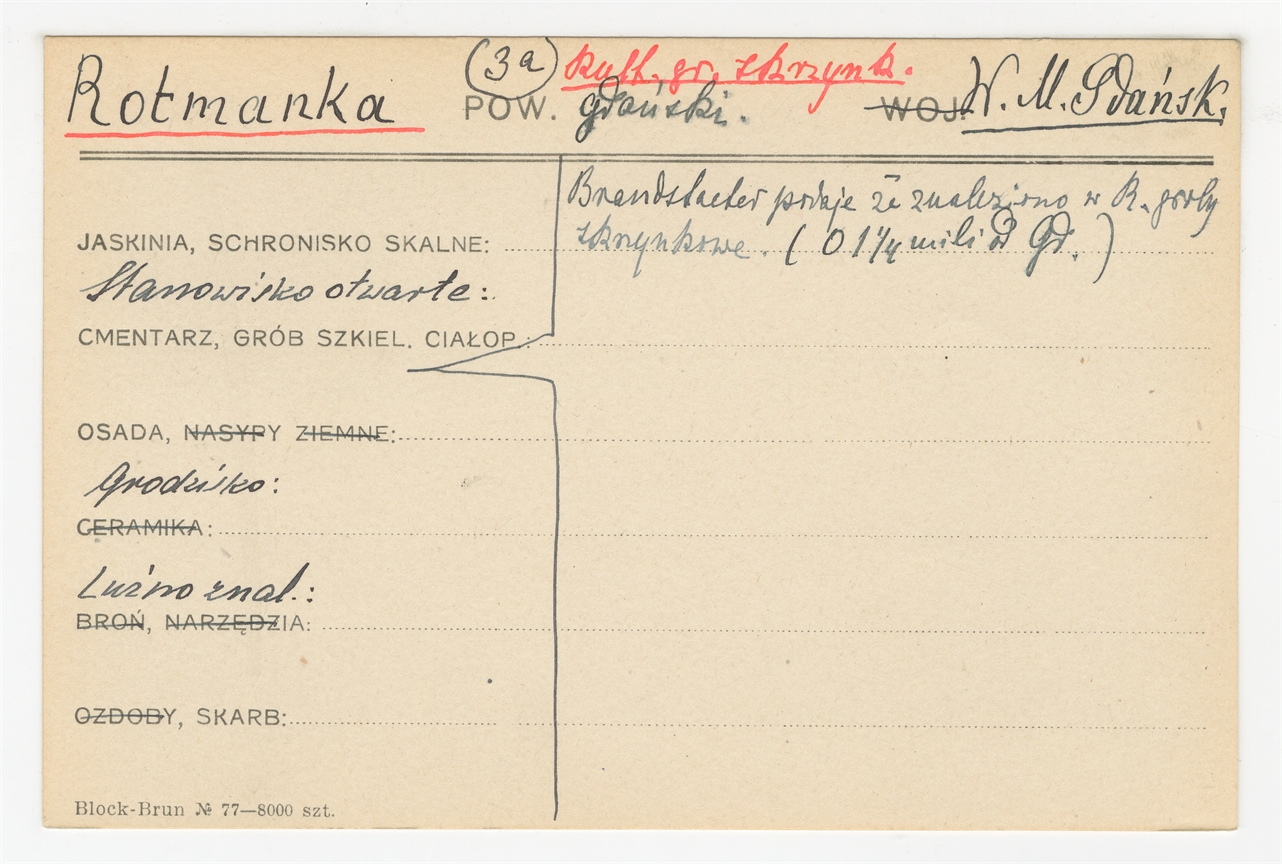 Rotmanka (3a) Kult. gr. skrzynk.
POW. gdański. WOJ. W. M. Gdańsk.
Brandstaeter podaje że znaleziono w R. groby
JASKINIA, SCHRONISKO SKALNE: skrzynkowe. (O 1 1/4 mili od Gd.)
Stanowisko otwarte:
CMENTARZ, GRÓB SZKIEL. CIAŁOP.:
OSADA, NASYPY ZIEMNE:
Grodzisko:
CERAMIKA:
Luźno znal.:
BROŃ, NARZĘDZIA:
OZDOBY, SKARB:
Block-Brun № 77—8000 szt.